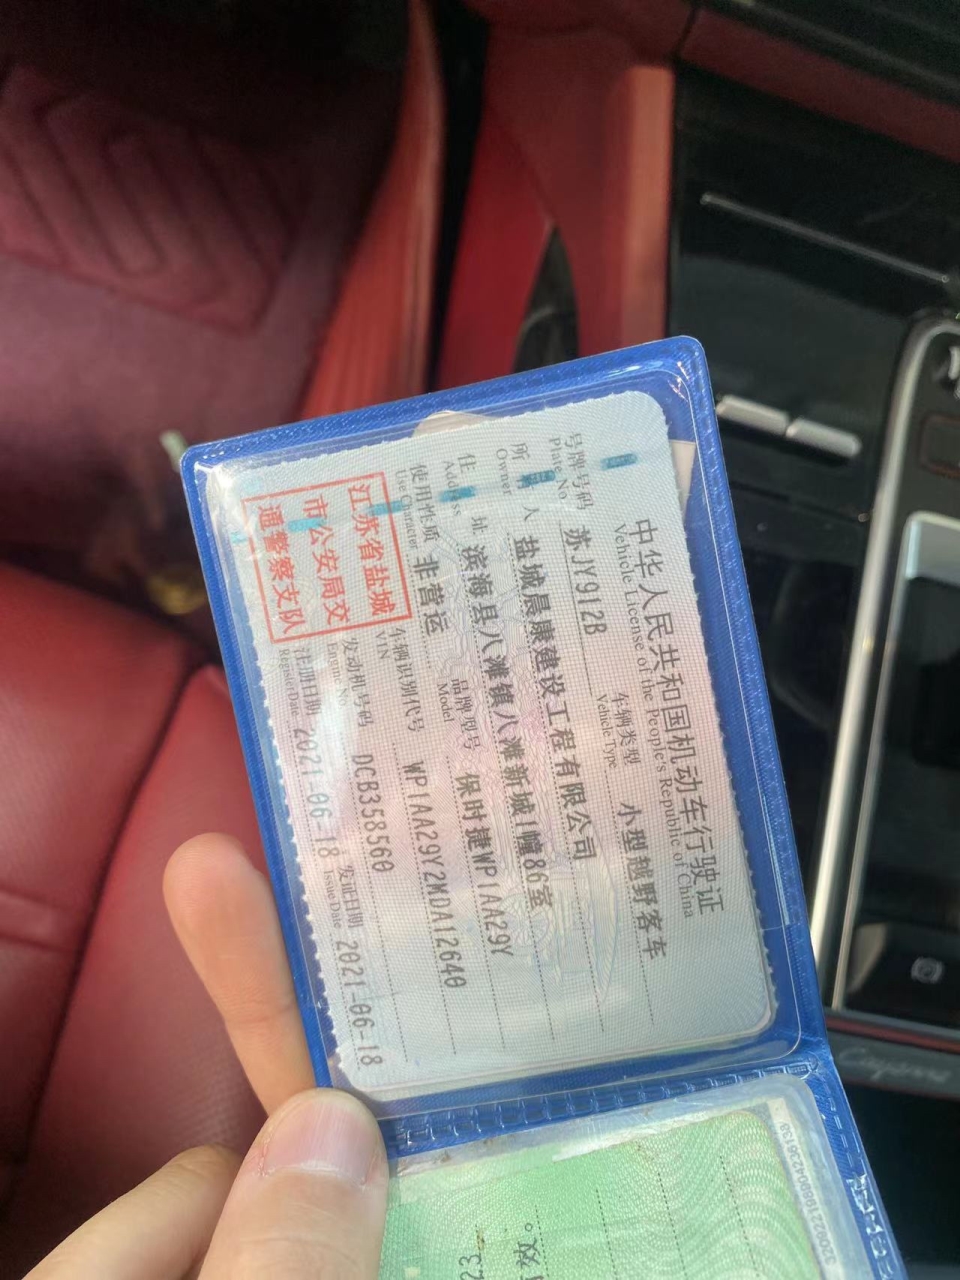 中华人民共和国机动车行驶证
Vehicle License of the People's Republic of China
号牌号码 苏JY912B 车辆类型 小型越野客车
Plate No. Vehicle Type
所有人 盐城晨康建设工程有限公司
Owner
住 址 滨海县八滩镇八滩新城1幢86室
Address
使用性质 非营运 品牌型号 保时捷WP1AA29Y
Use Character Model
车辆识别代号 WP1AA29Y2MDA12640
VIN
发动机号码 DCB358560
Engine No.
注册日期 2021-06-18 发证日期 2021-06-18
Register Date Issue Date
江苏省盐城
市公安局交
通警察支队
Cayenne
效。
23